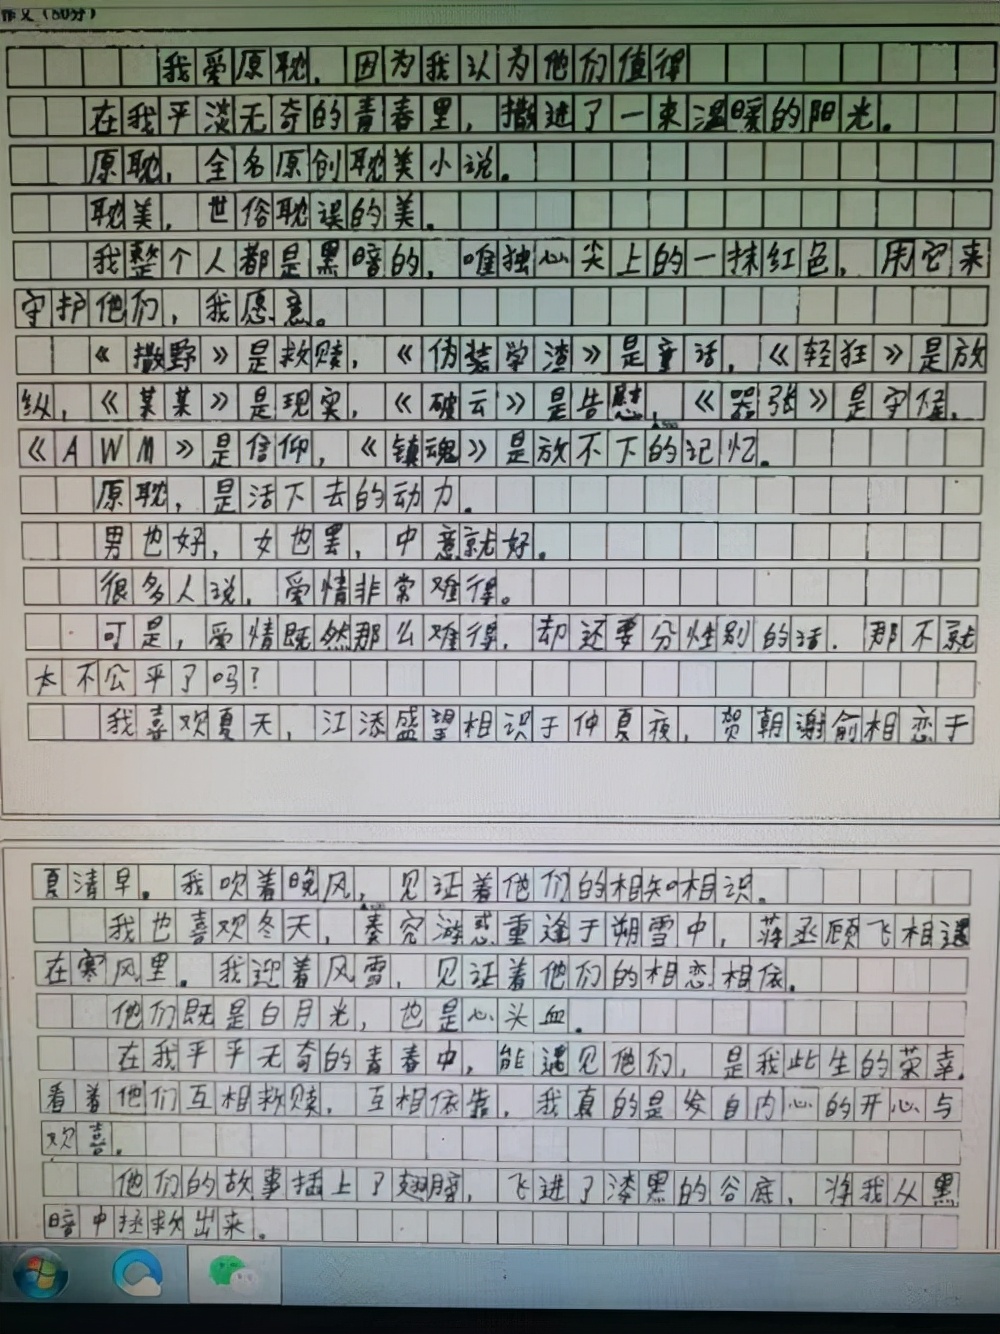 作文（60分）
我爱原耽，因为我认为他们值得
在我平淡无奇的青春里，撒进了一束温暖的阳光。
原耽，全名原创耽美小说。
耽美，世俗耽误的美。
我整个人都是黑暗的，唯独心尖上的一抹红色，用它来
守护他们，我愿意。
《撒野》是救赎，《伪装学渣》是童话，《轻狂》是放
纵，《某某》是现实，《破云》是告慰，《嚣张》是守候，
《AWM》是信仰，《镇魂》是放不下的记忆。
原耽，是活下去的动力。
男也好，女也罢，中意就好。
很多人说，爱情非常难得。
可是，爱情既然那么难得，却还要分性别的话，那不就
太不公平了吗？
我喜欢夏天，江添盛望相识于仲夏夜，贺朝谢俞相恋于
夏清早。我吹着晚风，见证着他们的相知相识。
我也喜欢冬天，秦究游惑重逢于朔雪中，蒋丞顾飞相遇
在寒风里。我迎着风雪，见证着他们的相恋相依。
他们既是白月光，也是心头血。
在我平平无奇的青春中，能遇见他们，是我此生的荣幸，
看着他们互相救赎，互相依靠，我真的是发自内心的开心与
欢喜。
他们的故事插上了翅膀，飞进了漆黑的谷底，将我从黑
暗中拯救出来。